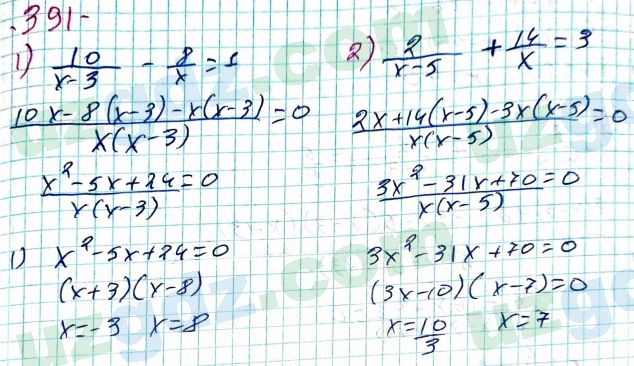 .391-
1) 10/(x-3) - 8/x = 1
(10x-8(x-3)-x(x-3))/(x(x-3)) = 0
(x²-5x+24)/(x(x-3)) = 0
1) x²-5x+24=0
(x+3)(x-8)
x=-3 x=8
2) 2/(x-5) + 14/x = 3
(2x+14(x-5)-3x(x-5))/(x(x-5)) = 0
(3x²-31x+70)/(x(x-5)) = 0
3x²-31x+70=0
(3x-10)(x-7)=0
x=10/3 x=7